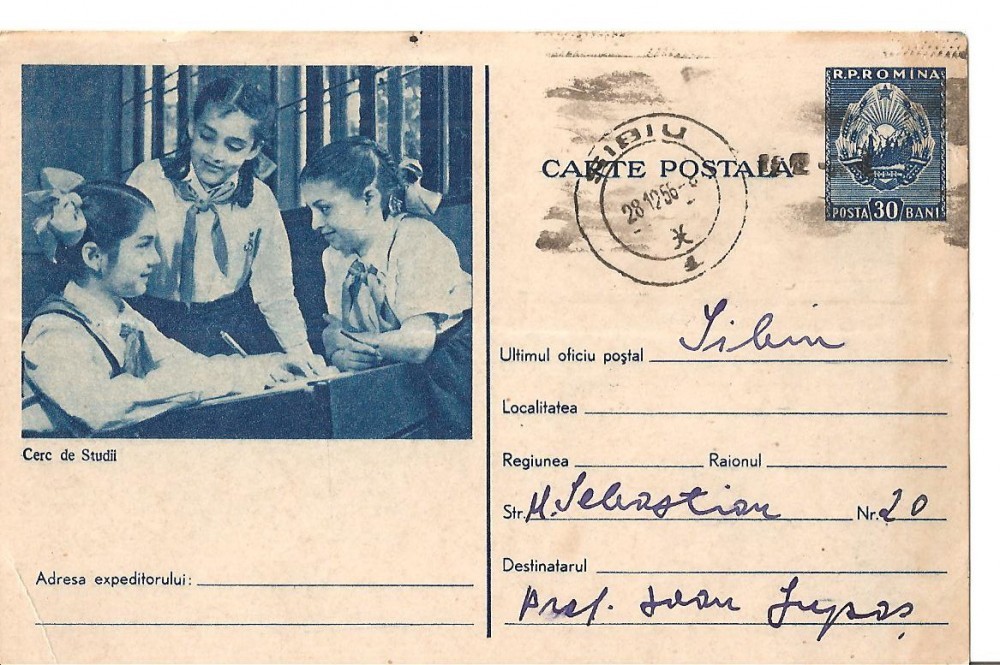 R.P.ROMINA
POSTA 30 BANI
CARTE POSTALA
SIBIU
28.12.56
1
Cerc de Studii
Adresa expeditorului:
Ultimul oficiu poștal Sibiu
Localitatea
Regiunea Raionul
Str. M. Sebastian Nr. 20
Destinatarul
Prof. Ioan Lupaș